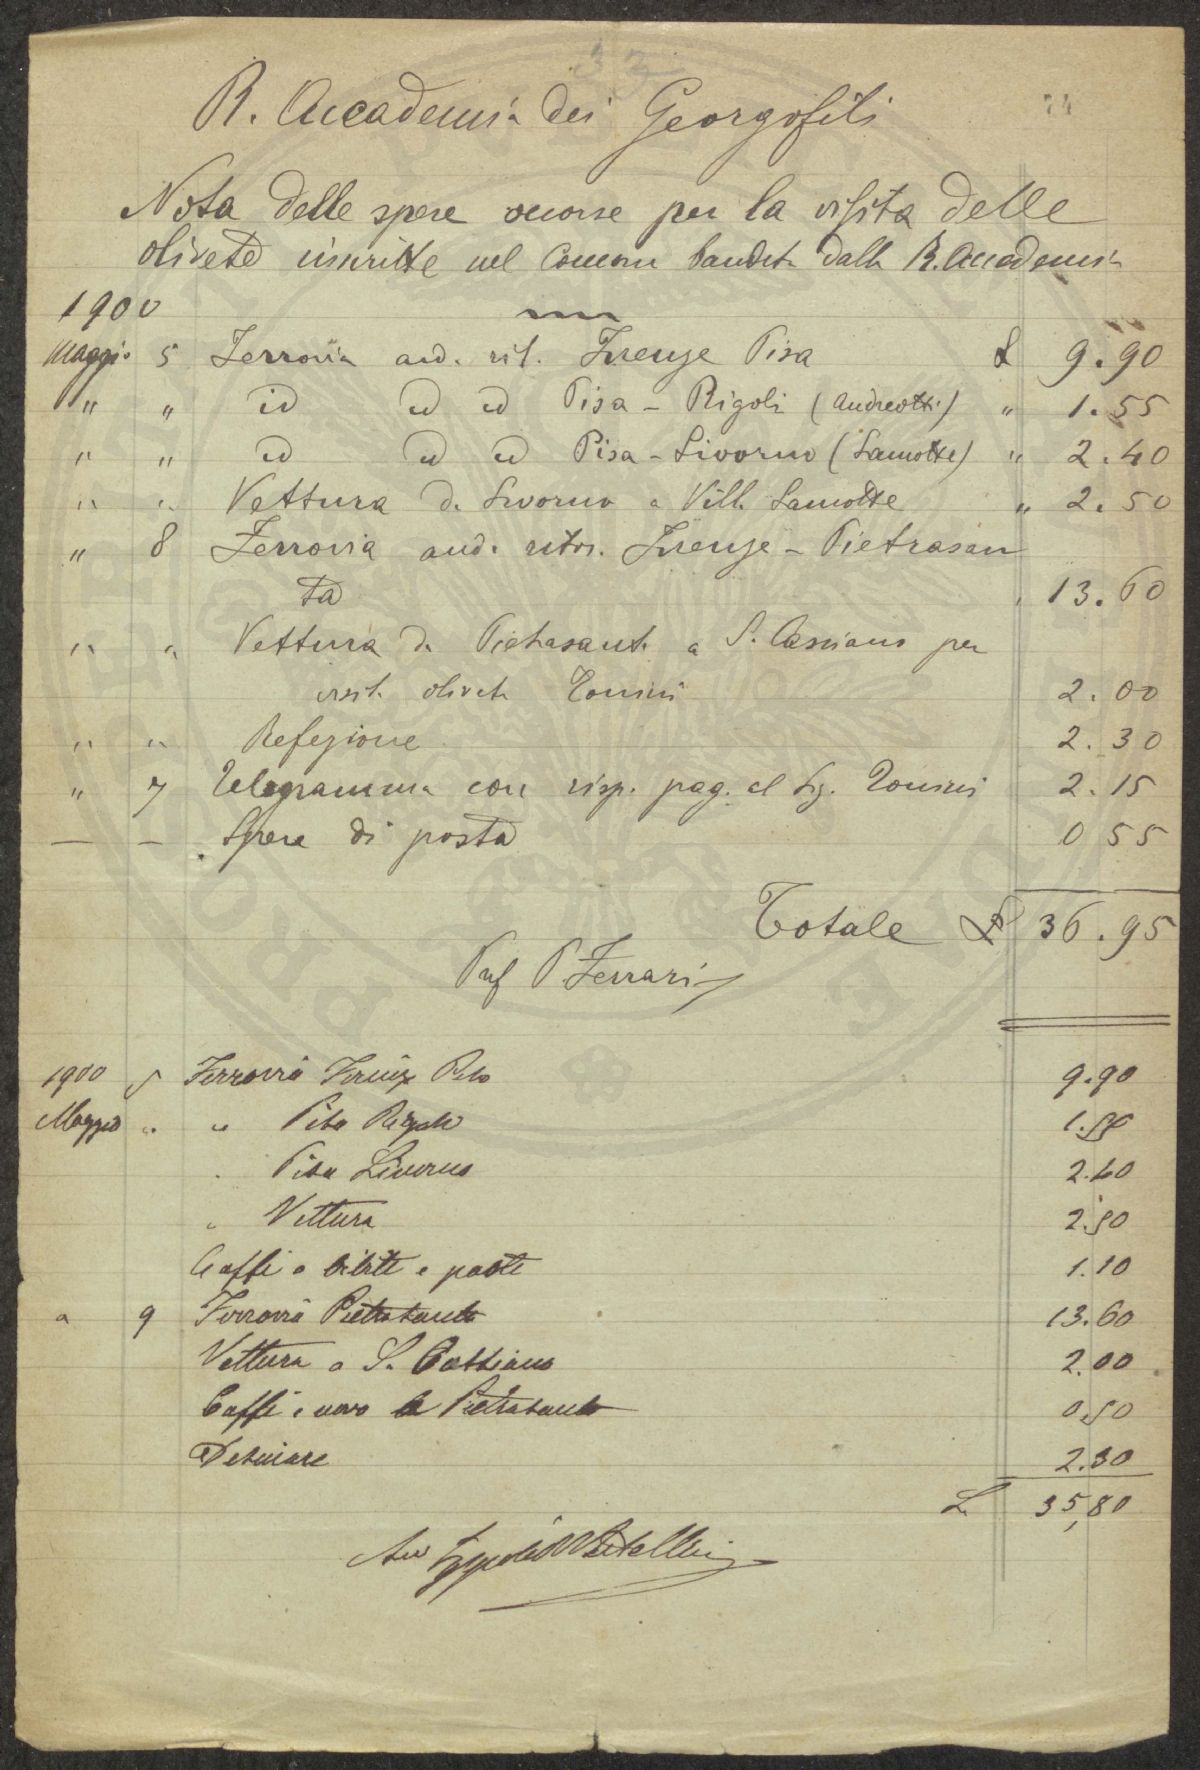 33
74
R. Accademia dei Georgofili
Nota delle spese occorse per la visita delle
olivete inscritte nel Concorso bandito dalla R. Accademia
1900
Maggio 5 Ferrovia and. rit. Firenze Pisa £ 9.90
" " id id id Pisa - Rigoli (Andreotti) " 1.55
" " id id id Pisa - Livorno (Lamotte) " 2.40
" " Vettura da Livorno a Villa Lamotte " 2.50
" 8 Ferrovia and. ritor. Firenze - Pietrasan
ta " 13.60
" " Vettura da Pietrasanta a S. Cassiano per
visita oliveta Tomini 2.00
" " Refezione 2.30
" 7 Telegramma con risp. pag. al Sig. Tomini 2.15
— — Spese di posta 0 55
Totale £ 36.95
Prof P. Ferrari
1900 5 Ferrovia Firenze Pisa 9.90
Maggio " " Pisa Rigoli 1.55
Pisa Livorno 2.40
" Vettura 2.50
Caffe e bibite e paste 1.10
" 9 Ferrovia Pietrasanta 13.60
Vettura a S. Cassiano 2.00
Caffe e uovo a Pietrasanta 0.50
Desinare 2.30
L. 35,80